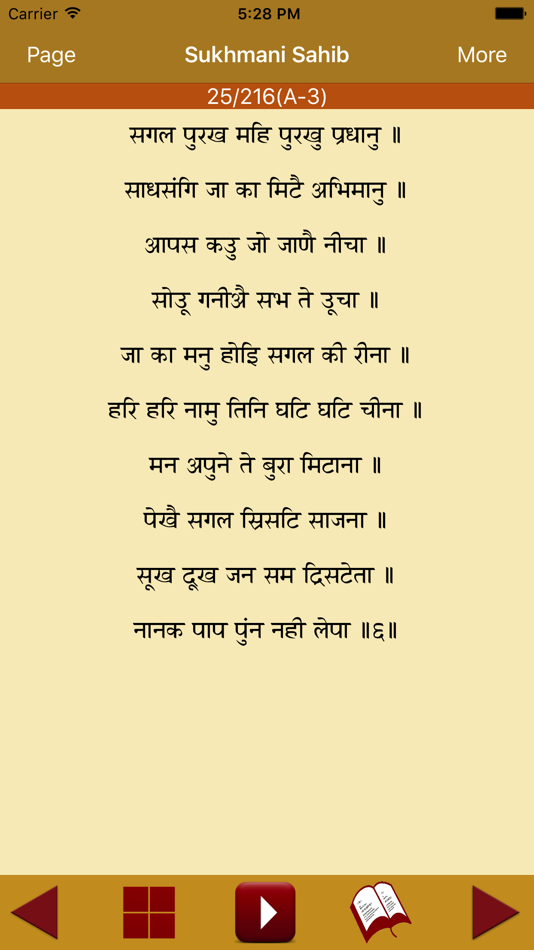 Carrier 5:28 PM
Page Sukhmani Sahib More
25/216(A-3)
सगल पुरख महि पुरखु प्रधानु ॥
साधसंगि जा का मिटै अभिमानु ॥
आपस कउ जो जाणै नीचा ॥
सोऊ गनीअै सभ ते ऊचा ॥
जा का मनु होइि सगल की रीना ॥
हरि हरि नामु तिनि घटि घटि चीना ॥
मन अपुने ते बुरा मिटाना ॥
पेखै सगल स्रिसटि साजना ॥
सूख दूख जन सम द्रिसटेता ॥
नानक पाप पुंन नही लेपा ॥६॥